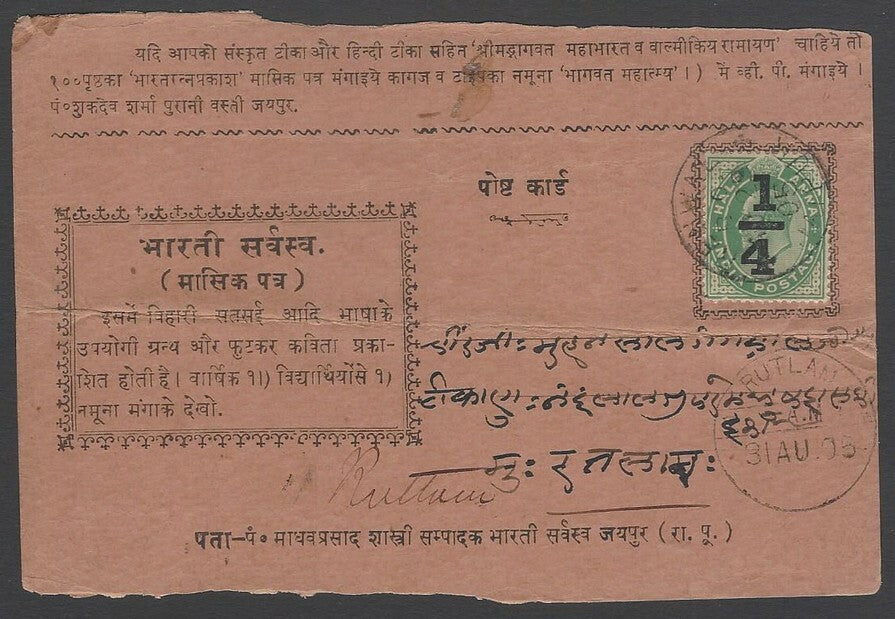 यदि आपको संस्कृत टीका और हिन्दी टीका सहित 'श्रीमद्भागवत महाभारत व वाल्मीकिय रामायण' चाहिये तो
१००पृष्ठका 'भारतरत्नप्रकाश' मासिक पत्र मंगाइये कागज व टाइपका नमूना 'भागवत महात्म्य' ।) में व्ही. पी. मंगाइये ।
पं॰शुकदेव शर्मा पुरानी वस्ती जयपुर.
पोष्ट कार्ड
HALF ANNA
1/4
INDIA POSTAGE
भारती सर्वस्व.
(मासिक पत्र)
इसमें विहारी सतसई आदि भाषाके
उपयोगी ग्रन्थ और फुटकर कविता प्रका-
शित होती है। वार्षिक १।) विद्यार्थियोंसे १)
नमूना मंगाके देखो.
RUTLAM
31 AU.
मु: रतलाम:
Rutlam
पता—पं॰ माधवप्रसाद शास्त्री सम्पादक भारती सर्वस्व जयपुर (रा. पू.)